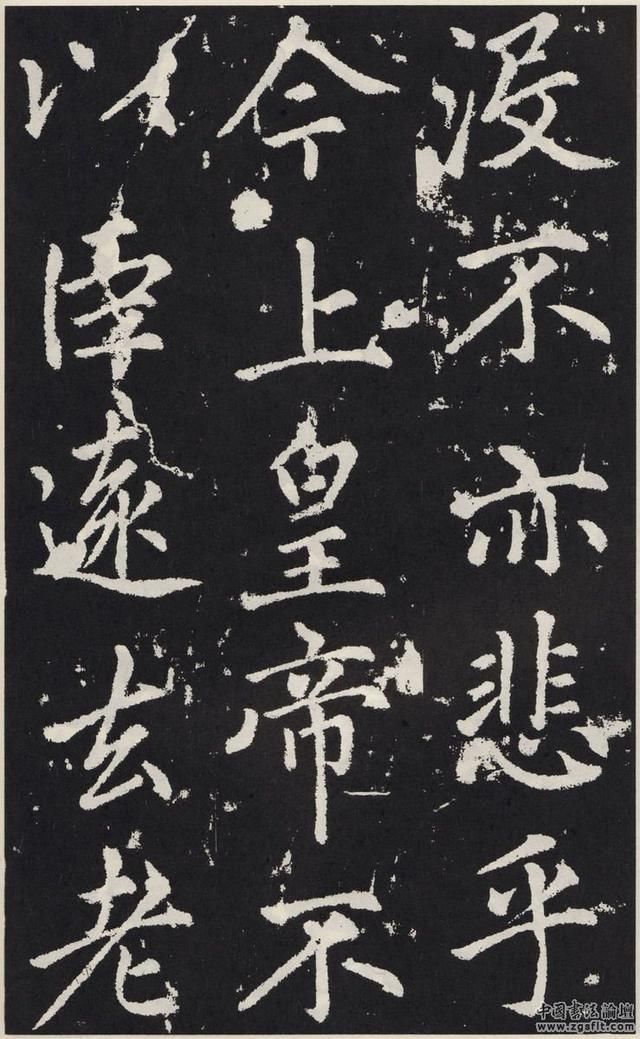 没不亦悲乎
今上皇帝不
以倖遠去老
中國書法論壇
www.zgsflt.com